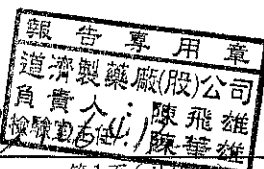 報告專用章
道濟製藥廠(股)公司
負責人：陳飛雄
檢驗室主任：陳華雄